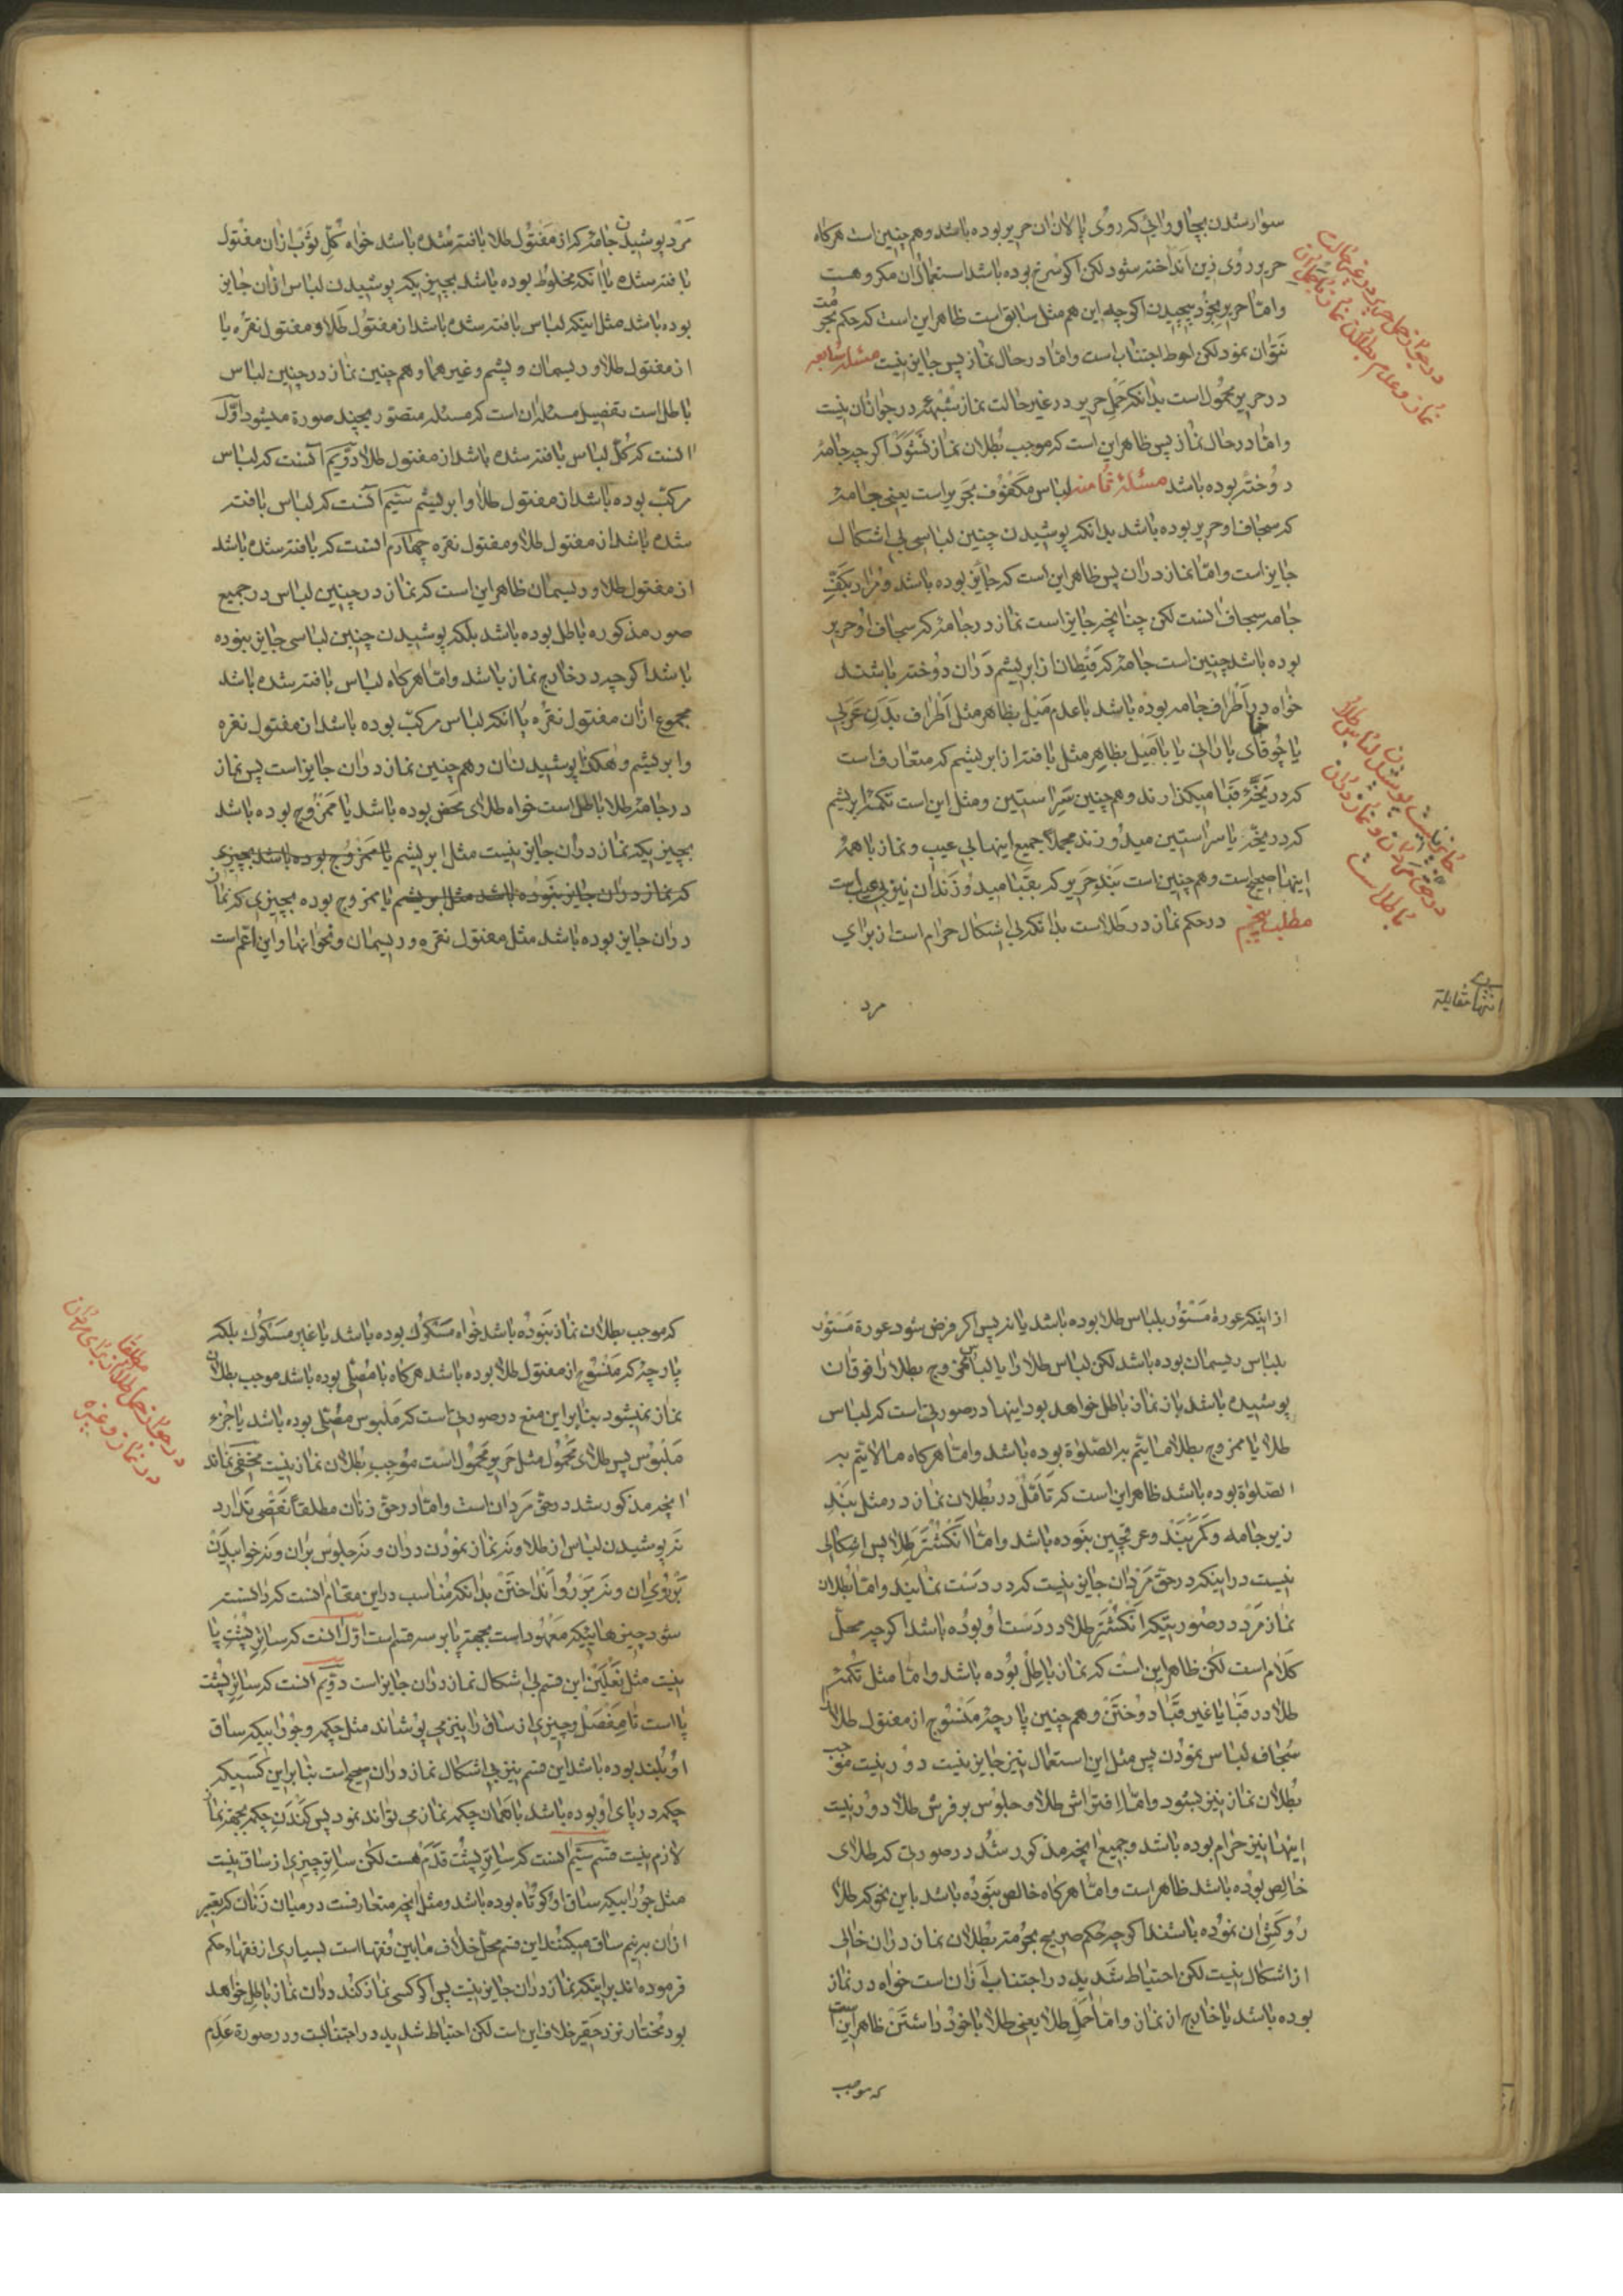 سوار شدن بچاروائی که روی پالان آن حریر بوده باشد و هم چنین است هرگاه
حریر در روی زین انداخته شود لکن اگر سرخ بوده باشد استعمال آن مکروهست
و اما حریر بخود پیچیدن اگرچه این هم مثل سابق است ظاهر این است که حکم بحرمت
نتوان نمود لکن احوط اجتناب است و اما در حال نماز پس جایز نیست مسئله سابعه
در حریر محمول است بدانکه حمل حریر در غیر حالت نماز شبهه در جواز آن نیست
و اما در حال نماز پس ظاهر این است که موجب بطلان نماز نشود اگرچه جامه
دوخته بوده باشد مسئله ثامنه لباس مکفوف بحریر است یعنی جامه
که سجاف او حریر بوده باشد بدانکه پوشیدن چنین لباسی بی اشکال
جایز است و اما نماز در آن پس ظاهر این است که جایز بوده باشد و مراد بکف
جامه سجاف آنست لکن چنانچه جایز است نماز در جامه که سجاف او حریر
بوده باشد چنین است جامه که قیطان از ابریشم در آن دوخته باشند
خواه در اطراف جامه بوده باشد با عدم میل بظاهر مثل اطراف بدن عربی
یا چوقای بارانی یا با میل بظاهر مثل بافته از ابریشم که متعارف است
که در یخه قبا میگذارند و هم چنین سر آستین و مثل این است تکمه ابریشم
که در یخه یا سر آستین میدوزند مجملا جمیع اینها بی عیب و نماز با همه
اینها صحیح است و هم چنین است بند حریر که بقبا میدوزند آن نیز بی عیب است
مطلب پنجم در حکم نماز در طلا است بدانکه بی اشکال حرام است از برای
مرد
در جواز حمل حریر در غیر حالت
نماز و عدم بطلان نماز با حمل آن
جایز نیست پوشیدن لباس طلا
در حق مردان و نماز در آن
باطل است
انتها مقابله
مرد پوشیدن جامه که از مفتول طلا بافته شده باشد خواه کل ثوب از آن مفتول
بافته شده یا آنکه مخلوط بوده باشد بچیزیکه پوشیدن لباس از آن جایز
بوده باشد مثل اینکه لباس بافته شده باشد از مفتول طلا و مفتول نقره یا
از مفتول طلا و ریسمان و پشم و غیر هما و هم چنین نماز در چنین لباس
باطل است تفصیل مسئله آن است که مسئله متصور بچند صورة میشود اول
آنست که کل لباس بافته شده باشد از مفتول طلا دویم آنست که لباس
مرکب بوده باشد از مفتول طلا و ابریشم سیم آنست که لباس بافته
شده باشد از مفتول طلا و مفتول نقره چهارم آنست که بافته شده باشد
از مفتول طلا و ریسمان ظاهر این است که نماز در چنین لباس در جمیع
صور مذکوره باطل بوده باشد بلکه پوشیدن چنین لباسی جایز نبوده
باشد اگرچه در خارج نماز باشد و اما هرگاه لباس بافته شده باشد
مجموع آن از مفتول نقره یا آنکه لباس مرکب بوده باشد از مفتول نقره
و ابریشم و هکذا پوشیدن آن و هم چنین نماز در آن جایز است پس نماز
در جامه طلا باطل است خواه طلای محض بوده باشد یا ممزوج بوده باشد
بچیزیکه نماز در آن جایز نیست مثل ابریشم یا ممزوج بوده باشد بچیزی
که نماز در آن جایز نبوده باشد مثل ابریشم یا ممزوج بوده بچیزی که نماز
در آن جایز بوده باشد مثل مفتول نقره و ریسمان و نحو آنها و این اعم است
از اینکه عورة مستور بلباس طلا بوده باشد یا نه پس اگر فرض شود عورة مستور
بلباس ریسمان بوده باشد لکن لباس طلا را یا لباس ممزوج بطلا را فوق آن
پوشیده باشد باز نماز باطل خواهد بود اینها در صورتی است که لباس
طلا یا ممزوج بطلا مما یتم به الصلوة بوده باشد و اما هرگاه مما لا یتم به
الصلوة بوده باشد ظاهر این است که تامل در بطلان نماز در مثل بند
زیر جامه و کمربند و عرقچین نبوده باشد و اما انگشتر طلا پس اشکالی
نیست در اینکه در حق مردان جایز نیست که در دست نمایند و اما بطلان
نماز مرد در صورتیکه انگشتر طلا در دست او بوده باشد اگرچه محل
کلام است لکن ظاهر این است که نماز باطل بوده باشد و اما مثل تکمه
طلا در قبا یا غیر قبا دوختن و هم چنین پارچه منسوج از مفتول طلا را
سجاف لباس نمودن پس مثل این استعمال نیز جایز نیست دور نیست موجب
بطلان نماز نیز بشود و اما افتراش طلا و جلوس بر فرش طلا دور نیست
اینها نیز حرام بوده باشد و جمیع آنچه مذکور شد در صورتی که طلای
خالص بوده باشد ظاهر است و اما هرگاه خالص نبوده باشد باین نحو که طلا
روکش آن نموده باشند اگرچه حکم صریح بحرمة و بطلان نماز در آن خالی
از اشکال نیست لکن احتیاط شدید در اجتناب از آن است خواه در نماز
بوده باشد یا خارج از نماز و اما حمل طلا یعنی طلا با خود داشتن ظاهر این است
که موجب
که موجب بطلان نماز نبوده باشد خواه مسکوک بوده باشد یا غیر مسکوک بلکه
پارچه که منسوج از مفتول طلا بوده باشد هرگاه با مصلی بوده باشد موجب بطلان
نماز نمیشود بنابراین منع در صورتی است که ملبوس مصلی بوده باشد یا جزء
ملبوس پس طلای محمول مثل حریر محمول است موجب بطلان نماز نیست مخفی نماند
آنچه مذکور شد در حق مردان است و اما در حق زنان مطلقا نقصی ندارد
نه پوشیدن لباس از طلا و نه نماز نمودن در آن و نه جلوس بر آن و نه خوابیدن
بر روی آن و نه بر رو انداختن بدانکه مناسب در این مقام آنست که دانسته
شود چیزهائیکه معهود است بجهة پا بر سه قسم است اول آنست که ساتر پشت پا
نیست مثل نعلین این قسم بی اشکال نماز در آن جایز است دویم آنست که ساتر پشت
پا است تا مفصل و چیزی از ساق را نیز می پوشاند مثل چکمه و جورابیکه ساق
او بلند بوده باشد این قسم نیز بی اشکال نماز در آن صحیح است بنابراین کسیکه
چکمه در پای او بوده باشد با همان چکمه نماز می تواند نمود پس کندن چکمه بجهة نماز
لازم نیست قسم سیم آنست که ساتر پشت قدم هست لکن ساتر چیزی از ساق نیست
مثل جورابیکه ساق او کوتاه بوده باشد و مثل آنچه متعارفست در میان زنان که تعبیر
از آن به نیم ساق میکنند این قسم محل خلاف مابین فقها است بسیاری از فقهاء حکم
فرموده اند براینکه نماز در آن جایز نیست پس اگر کسی نماز کند در آن نماز باطل خواهد
بود مختار نزد حقیر خلاف این است لکن احتیاط شدید در اجتنابست و در صورة عدم
در جواز حمل طلا و از برای مردان
مطلقا
در نماز و غیره